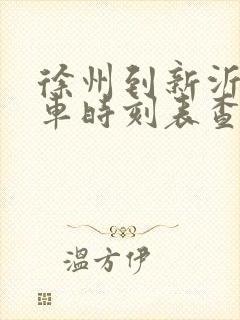 徐州到新沂
車時刻表查
溫方伊